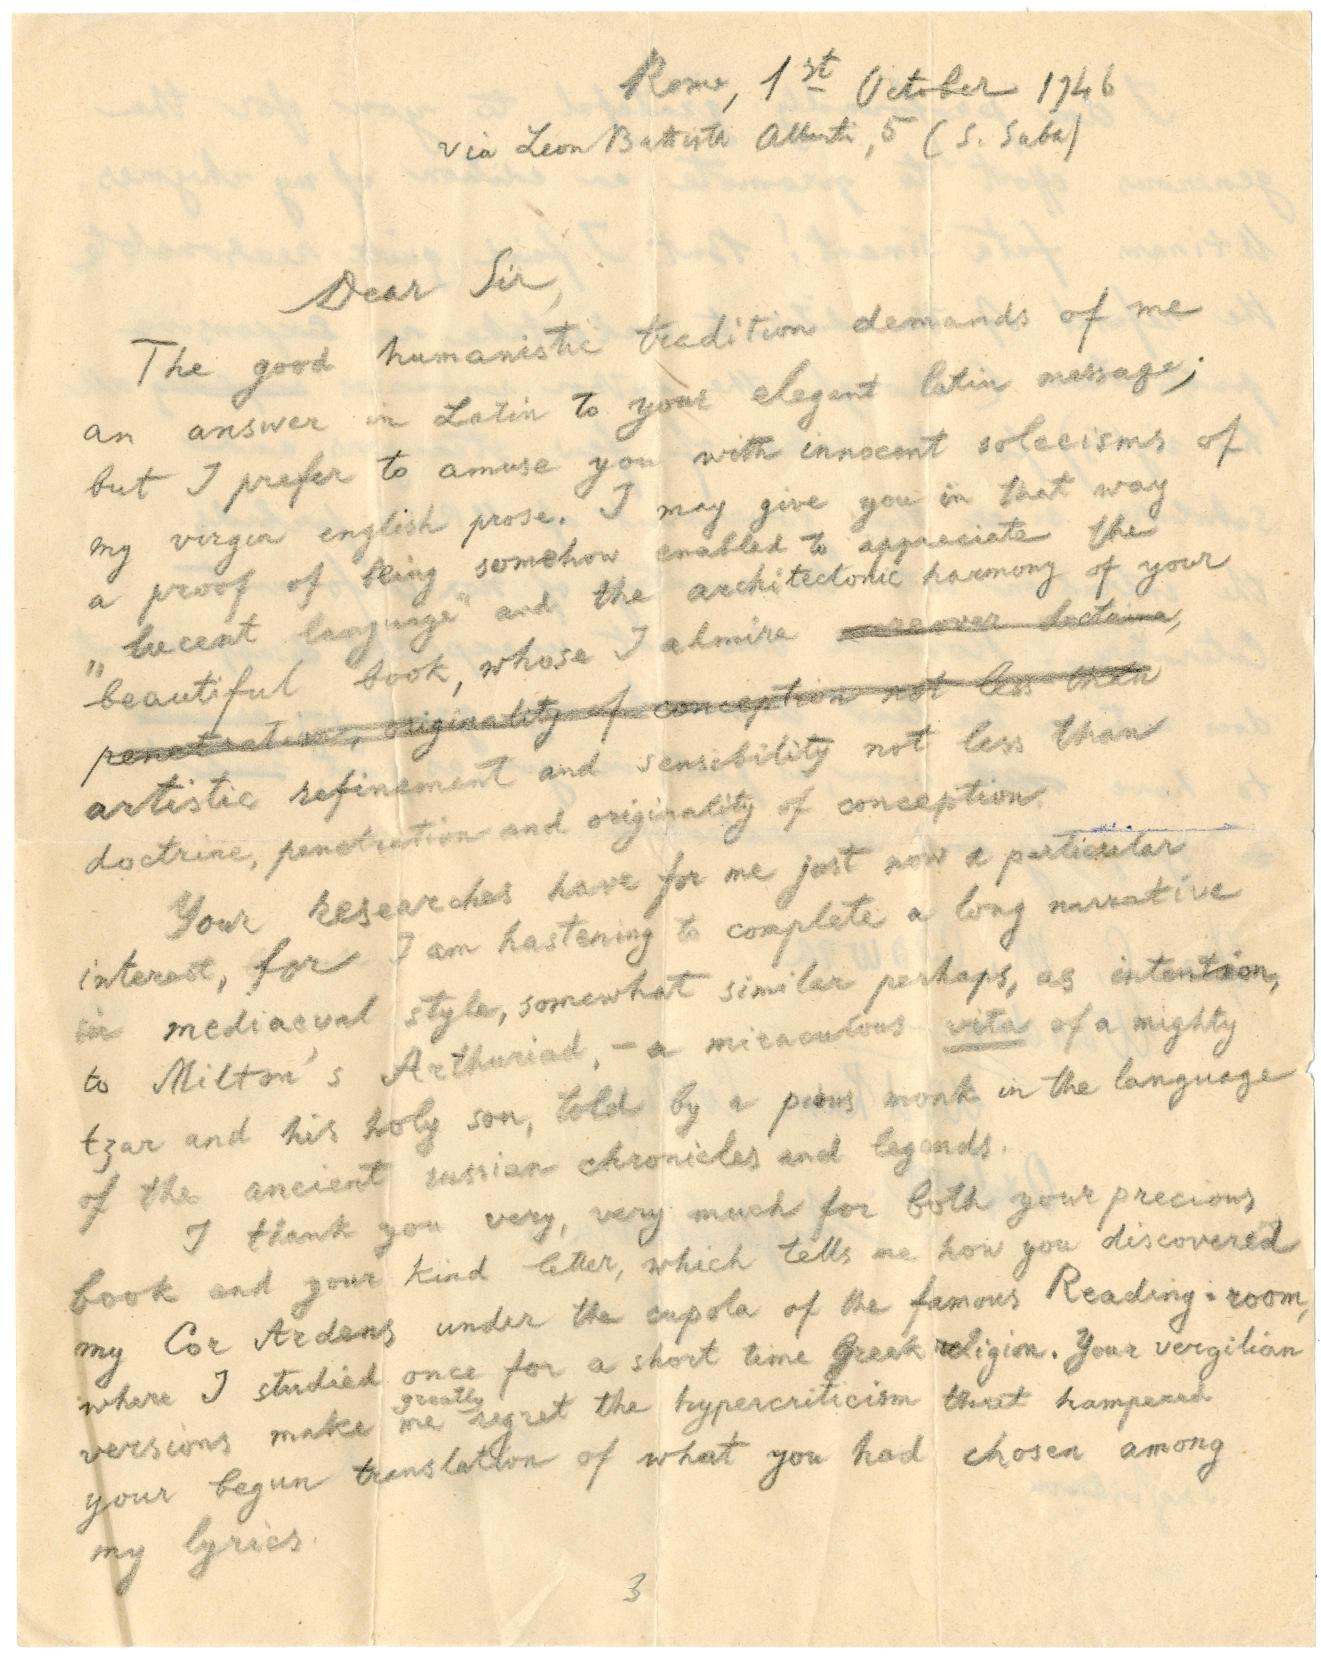 Rome, 1st October 1946
via Leon Battista Alberti, 5 (S. Saba)
Dear Sir,
The good humanistic tradition demands of me
an answer in Latin to your elegant latin message;
but I prefer to amuse you with innocent solecisms of
my virgin english prose. I may give you in that way
a proof of being somehow enabled to appreciate the
"lucent language" and the architectonic harmony of your
beautiful book, whose I admire doctrine,
penetration, originality of conception not less than
artistic refinement and sensibility not less than
doctrine, penetration and originality of conception.
Your researches have for me just now a particular
interest, for I am hastening to complete a long narrative
in mediaeval style, somewhat similar perhaps, as intention,
to Milton's Arthuriad, - a miraculous vita of a mighty
tzar and his holy son, told by a pious monk in the language
of the ancient russian chronicles and legends.
I thank you very, very much for both your precious
book and your kind letter, which tells me how you discovered
my Cor Ardens under the cupola of the famous Reading-room,
where I studied once for a short time Greek religion. Your vergilian
versions make me greatly regret the hypercriticism that hampered
your begun translation of what you had chosen among
my lyrics.
3